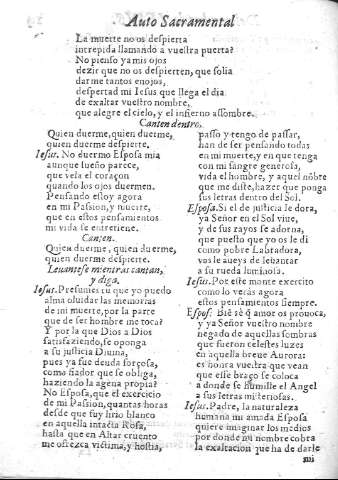 Auto Sacramental
La muerte no os despierta
intrepida llamando a vuestra puerta?
No pienso ya mis ojos
dezir que no os despierten, que solia
darme tantos enojos,
despertad mi Iesus que llega el dia
de exaltar vuestro nombre,
que alegre el cielo, y el infierno assombre.
Canten dentro.
Quien duerme, quien duerme,
quien duerme despierte.
Iesus. No duermo Esposa mia
aunque sueño parece,
que vela el coraçon
quando los ojos duermen.
Pensando estoy agora
en mi Passion, y muerte,
que en estos pensamientos
mi vida se entretiene.
Canten.
Quien duerme, quien duerme,
quien duerme despierte.
Leuantese mientras cantan,
y diga.
Iesus. Presumes tu que yo puedo
alma oluidar las memorias
de mi muerte, por la parte
que de ser hombre me toca?
Y por la que Dios a Dios
satisfaziendo, se oponga
a su justicia Diuina,
pues ya fue deuda forçosa,
como fiador que se obliga,
haziendo la agena propia?
No Esposa, que el exercicio
de mi Passion, quantas horas
desde que fuy lirio blanco
en aquella intacta Rosa,
hasta que en Altar cruento
me ofrezca victima, y hostia,
passo y tengo de passar,
han de ser pensando todas
en mi muerte, y en que tenga
con mi sangre generosa,
vida el hombre, y aquel nõbre
que me diste, hazer que ponga
sus letras dentro del Sol.
Esposa. Si el de justicia le dora,
ya Señor en el Sol viue,
y de sus rayos se adorna,
que puesto que yo os le di
como pobre Labradora,
vos le aueys de leuantar
a su rueda luminosa.
Iesus. Por este monte exercito
como lo verás agora
estos pensamientos siempre.
Espos. Biẽ sè q̃ amor os prouoca,
y ya Señor vuestro nombre
negado de aquellas sombras
que fueron celestes luzes
en aquella breue Aurora:
es honra vuestra que vean
que esse braço se coloca
a donde se humille el Angel
a sus letras misteriosas.
Iesus. Padre, la naturaleza
humana mi amada Esposa
quiere imaginar los medios
por donde mi nombre cobra
la exaltacion que ha de darle
mi